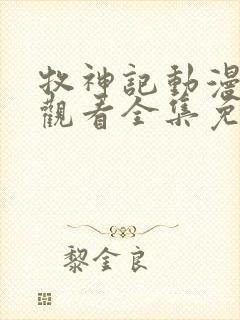 牧神記動漫
觀看全集免
黎金良